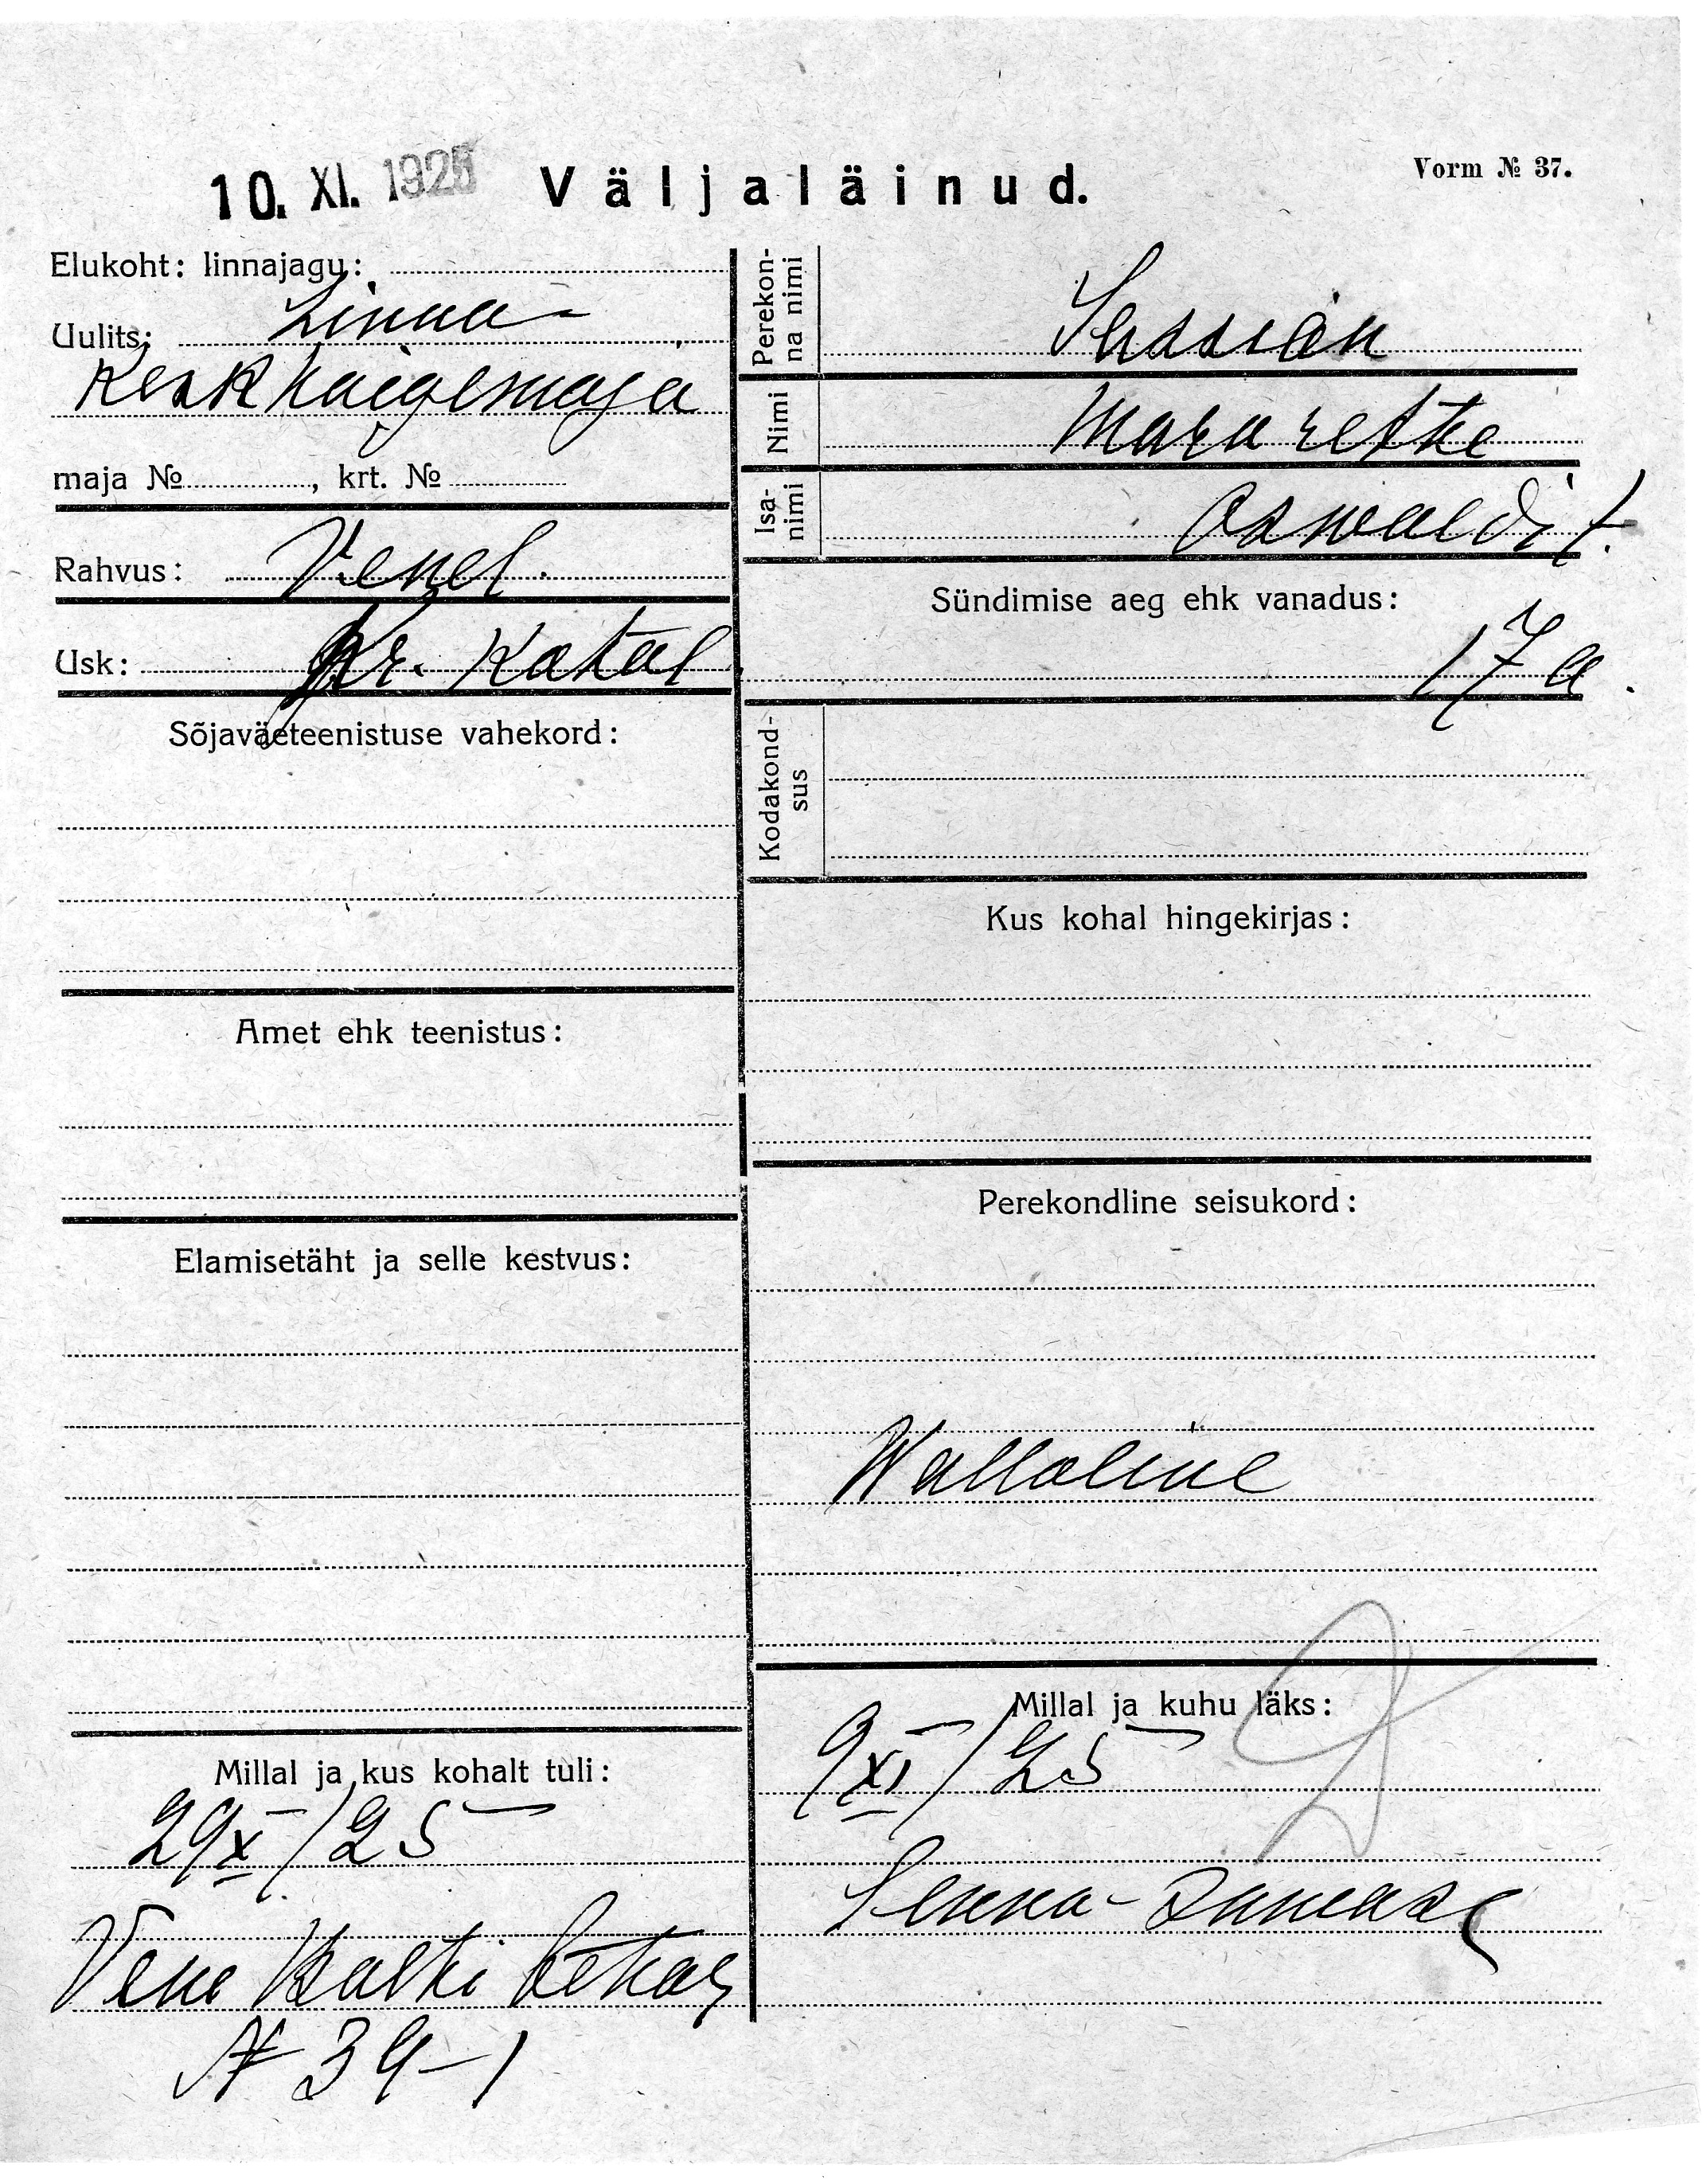 Vorm № 37.
10. XI. 1925 Väljaläinud.
Elukoht: linnajagu:
Uulits: Linna-
Keskhaigemaja
maja № , krt. №
Rahvus: Venel.
Usk: Kr. Katol
Sõjaväeteenistuse vahekord:
Amet ehk teenistus:
Elamisetäht ja selle kestvus:
Millal ja kus kohalt tuli:
29 X / 25
Vene Balti
№ 39-1
Perekon-
na nimi
Nimi Margarethe
Isa-
nimi Oswaldi t.
Sündimise aeg ehk vanadus:
17 a.
Kodakond-
sus
Kus kohal hingekirjas:
Perekondline seisukord:
Wallaline
Millal ja kuhu läks:
9 XI / 25
Senna-